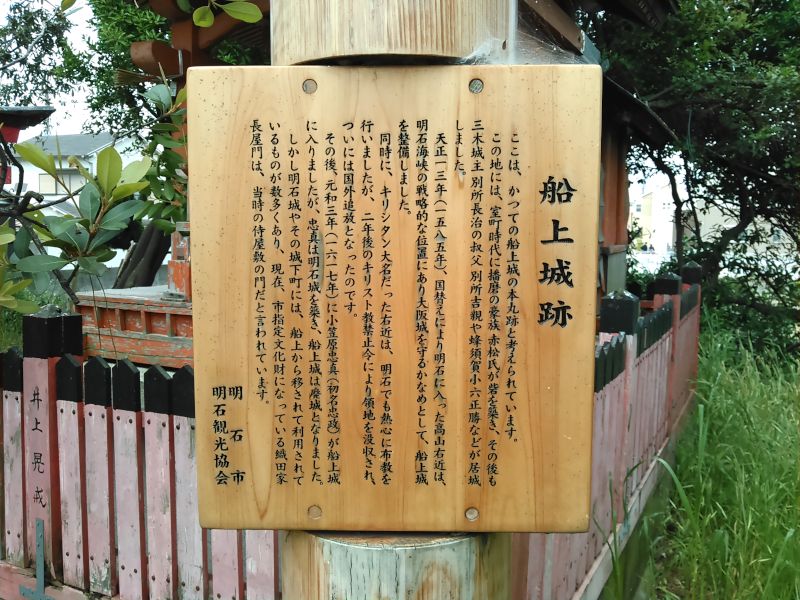 船上城跡
ここは、かつての船上城の本丸跡と考えられています。
この地には、室町時代に播磨の豪族 赤松氏が砦を築き、その後も
三木城主 別所長治の叔父 別所吉親や蜂須賀小六正勝などが居城
しました。
天正一三年(一五八五年)、国替えにより明石に入った高山右近は、
明石海峡の戦略的な位置にあり大阪城を守るかなめとして、船上城
を整備しました。
同時に、キリシタン大名だった右近は、明石でも熱心に布教を
行いましたが、二年後のキリスト教禁止令により領地を没収され、
ついには国外追放となったのです。
その後、元和三年(一六一七年)に小笠原忠真(初名忠政)が船上城
に入りましたが、忠真は明石城を築き、船上城は廃城となりました。
しかし明石城やその城下町には、船上から移されて利用されて
いるものが数多くあり、現在、市指定文化財になっている織田家
長屋門は、当時の侍屋敷の門だと言われています。
明石市
明石観光協会
井上 晃戒